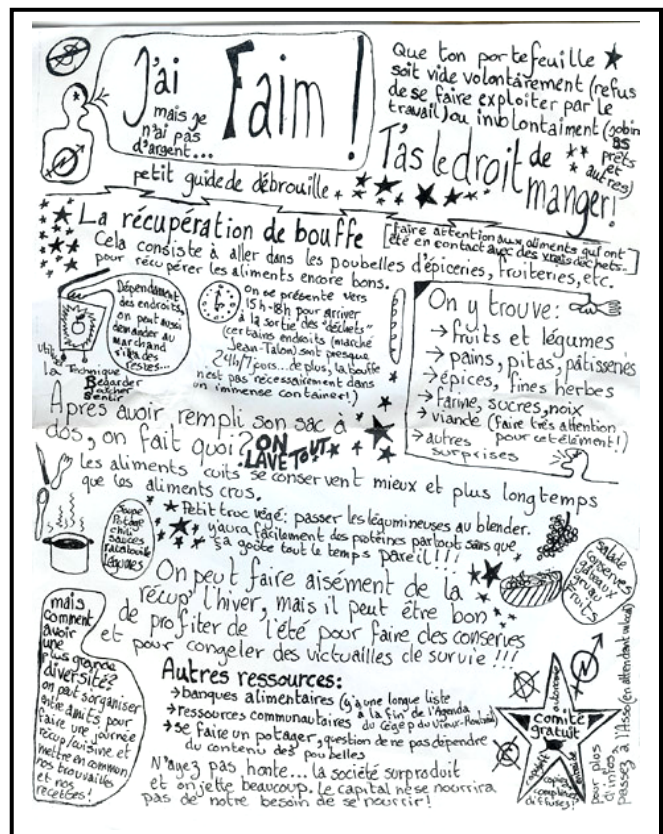 J'ai
mais je
n'ai pas
d'argent...
Faim !
petit guide de débrouille
Que ton portefeuille
soit vide volontairement (refus
de se faire exploiter par le
travail) ou involontaiment (jobine
BS
prêts
et
autres)
T'as le droit de
manger!
La récupération de bouffe
[faire attention aux aliments qui ont
été en contact avec des vrais déchets...]
Cela consiste à aller dans les poubelles d'épiceries, fruiteries, etc.
pour récupérer les aliments encore bons.
Dépendament
des endroits,
on peut aussi
demander au
marchand
s'il a des
restes...
la Technique
Regarder
Tatcher
Sentir
On se présente vers
15h-18h pour arriver
à la sortie des "déchets"
(certains endroits (marché
Jean-Talon) sont presque
24h/7jours... de plus, la bouffe
n'est pas nécessairement dans
un immense container!)
On y trouve:
→ fruits et légumes
→ pains, pitas, pâtisseries
→ épices, fines herbes
→ farine, sucres, noix
→ viande (faire très attention
pour cet élément!)
→ autres
surprises
Après avoir rempli son sac à
dos, on fait quoi? ON
LAVE TOUT
Les aliments cuits se conservent mieux et plus longtemps
que les aliments crus.
Soupe
Potage
chili
sauces
ratatouille
légumes
Petit truc végé: passer les légumineuses au blender.
y'aura facilement des protéines partout sans que
ça goûte tout le temps pareil!!!
Salade
conserves
gâteaux
gruau
Fruits
On peut faire aisément de la
récup' l'hiver, mais il peut être bon
de profiter de l'été pour faire des conserves
et pour congeler des victuailles de survie!!!
mais
comment
avoir
une
plus grande
diversité?
on peut s'organiser
entre amis pour
faire une journée
récup/cuisine et
mettre en commun
nos trouvailles
et nos
recettes!
Autres ressources:
→ banques alimentaires (y'a une longue liste
à la fin de l'Agenda
du Cégep du Vieux-Montréal)
→ ressources communautaires
→ se faire un potager, question de ne pas dépendre
du contenu des poubelles
N'ayez pas honte... la société surproduit
et on jette beaucoup. Le capital ne se nourrira
pas de notre besoin de se nourrir!
comité
gratuit
copiez
diffusez!
pour plus
d'infos,
passez à l'Asso (en attendant un local)